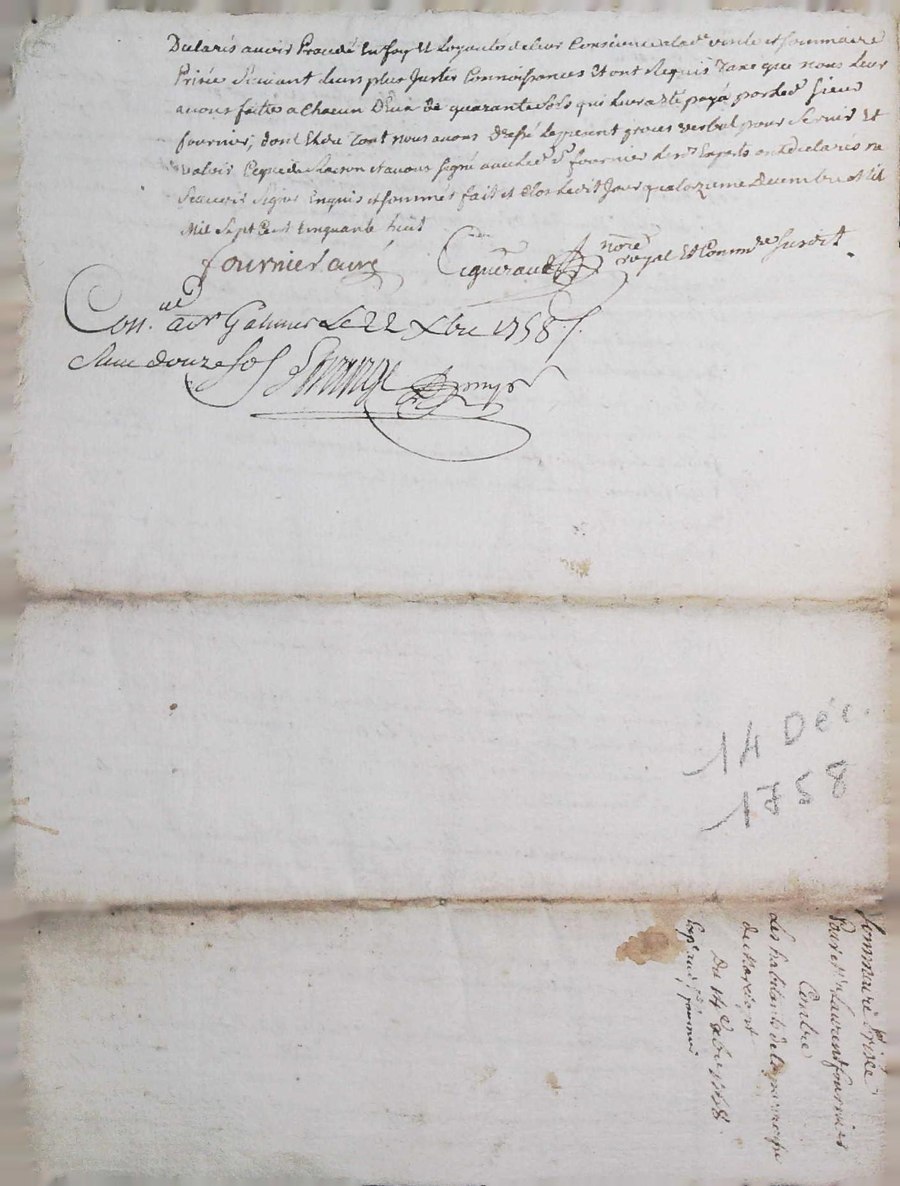 Declarés avoir Procedé En foy Et Loyautés de leur Consience a lad.e visite et sommaire
Prisée Suivant leurs plus Justes Connoissances Et ont Requis Taxe que nous Leur
avons faitte a Chacun D'Eux de quarante sols qui leur a Eté payé par led. sieur
fournier, dont Et du Tout nous avons Dressé Le present proces verbal pour Servir Et
valoir Ce que de Raison et avons signé avec led. Sr fournier Les dts Experts ont declarés ne
Scavoir Signer Enquis et sommés fait et Clos ledit Jour quatorzieme Decembre
Mil Sept Cent Cinquante huit
fournier curé
nore royal Et Comm.re Susdit
Con.lé a St Galmier Le 22 Xbre 1758
douze sols
14 Déc.
1758
Sommaire Prisée
Pour Laurent fournier
Contre
Les habitants de la parroisse
Du 14e Xbre 1758